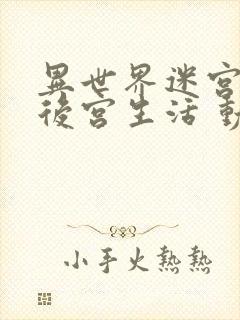 異世界迷宮
後宮生活 動
小手火熱熱